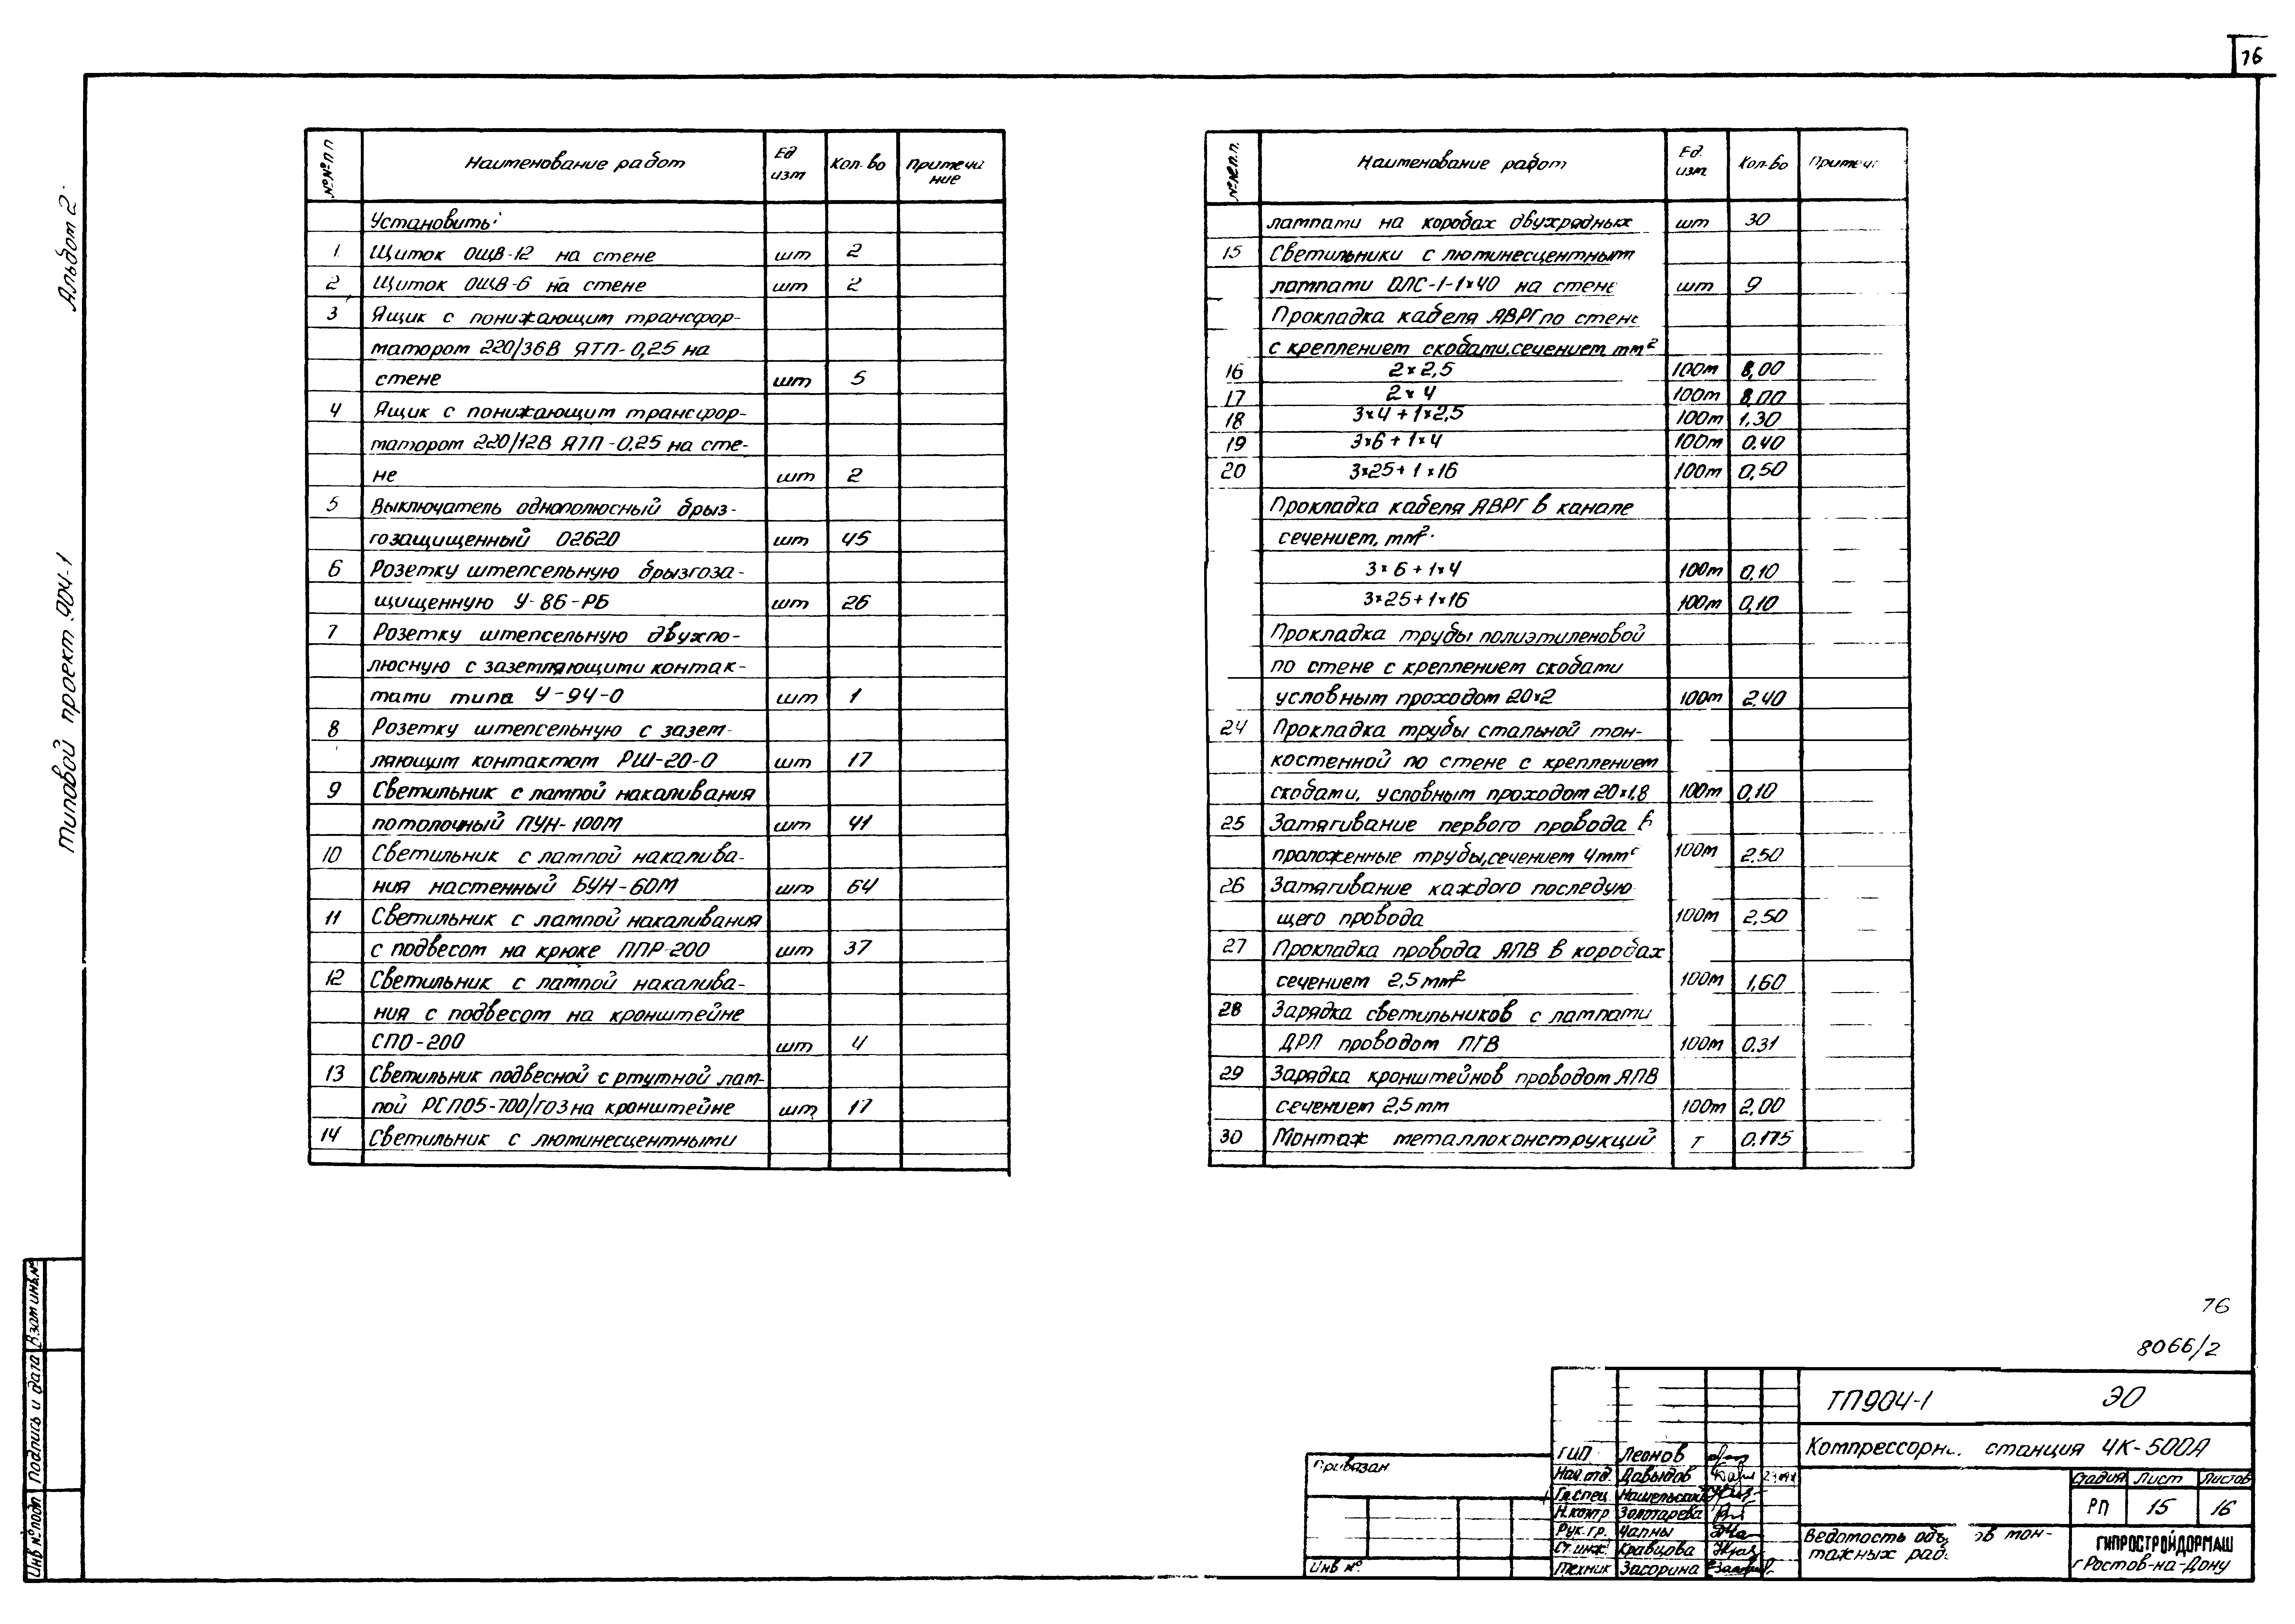 76
Альбом 2
Типовой проект 904-1
№№ п.п Наименование работ Ед изм Кол. во Примечание
Установить:
1 Щиток ОЩВ-12 на стене шт 2
2 Щиток ОЩВ-6 на стене шт 2
3 Ящик с понижающим трансфор-
матором 220/36В ЯТП-0,25 на
стене шт 5
4 Ящик с понижающим трансфор-
матором 220/12В ЯТП-0,25 на сте-
не шт 2
5 Выключатель однополюсный брыз-
гозащищенный 02620 шт 45
6 Розетку штепсельную брызгоза-
щищенную У-86-РБ шт 26
7 Розетку штепсельную двухпо-
люсную с заземляющими контак-
тами типа У-94-0 шт 1
8 Розетку штепсельную с зазем-
ляющим контактом РШ-20-0 шт 17
9 Светильник с лампой накаливания
потолочный ПУН-100М шт 41
10 Светильник с лампой накалива-
ния настенный БУН-60М шт 64
11 Светильник с лампой накаливания
с подвесом на крюке ППР-200 шт 37
12 Светильник с лампой накалива-
ния с подвесом на кронштейне
СПО-200 шт 4
13 Светильник подвесной с ртутной лам-
пой РСП05-700/Г03 на кронштейне шт 17
14 Светильник с люминесцентными
№№ п.п. Наименование работ Ед. изм. Кол-во Примеч
лампами на коробах двухрядных шт 30
15 Светильники с люминесцентным
лампами ОЛС-1-1×40 на стене шт 9
Прокладка кабеля АВРГ по стене
с креплением скобами, сечением, мм²
16 2×2,5 100м 8,00
17 2×4 100м 8,00
18 3×4+1×2,5 100м 1,30
19 3×6+1×4 100м 0,40
20 3×25+1×16 100м 0,50
Прокладка кабеля АВРГ в канале
сечением, мм²
3×6+1×4 100м 0,10
3×25+1×16 100м 0,10
Прокладка трубы полиэтиленовой
по стене с креплением скобами
условным проходом 20×2 100м 2,40
24 Прокладка трубы стальной тон-
костенной по стене с креплением
скобами, условным проходом 20×1,8 100м 0,10
25 Затягивание первого провода в
проложенные трубы, сечением 4мм² 100м 2.50
26 Затягивание каждого последую
щего провода 100м 2.50
27 Прокладка провода АПВ в коробах
сечением 2,5 мм² 100м 1,60
28 Зарядка светильников с лампами
ДРЛ проводом ПГВ 100м 0.31
29 Зарядка кронштейнов проводом АПВ
сечением 2,5 мм 100м 2,00
30 Монтаж металлоконструкций т 0,175
76
8066/2
ТП904-1 ЭО
Компрессорн. станция 4К-500А
Стадия Лист Листов
РП 15 16
Ведомость объ ов мон-
тажных раб.
ГИПРОСТРОЙДОРМАШ
г Ростов-на-Дону
ГИП Леонов
Нач. отд. Давыдов
Гл. спец.
Н. контр Золотарева
Рук. гр. Чапны
Ст. инж. Кравцова
Техник Засорина
Привязан
Инв №
Взам инв. №
Подпись и дата
Инв № подп